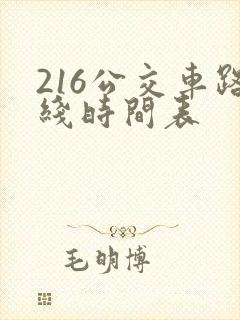 216公交車路
綫時間表
毛明博